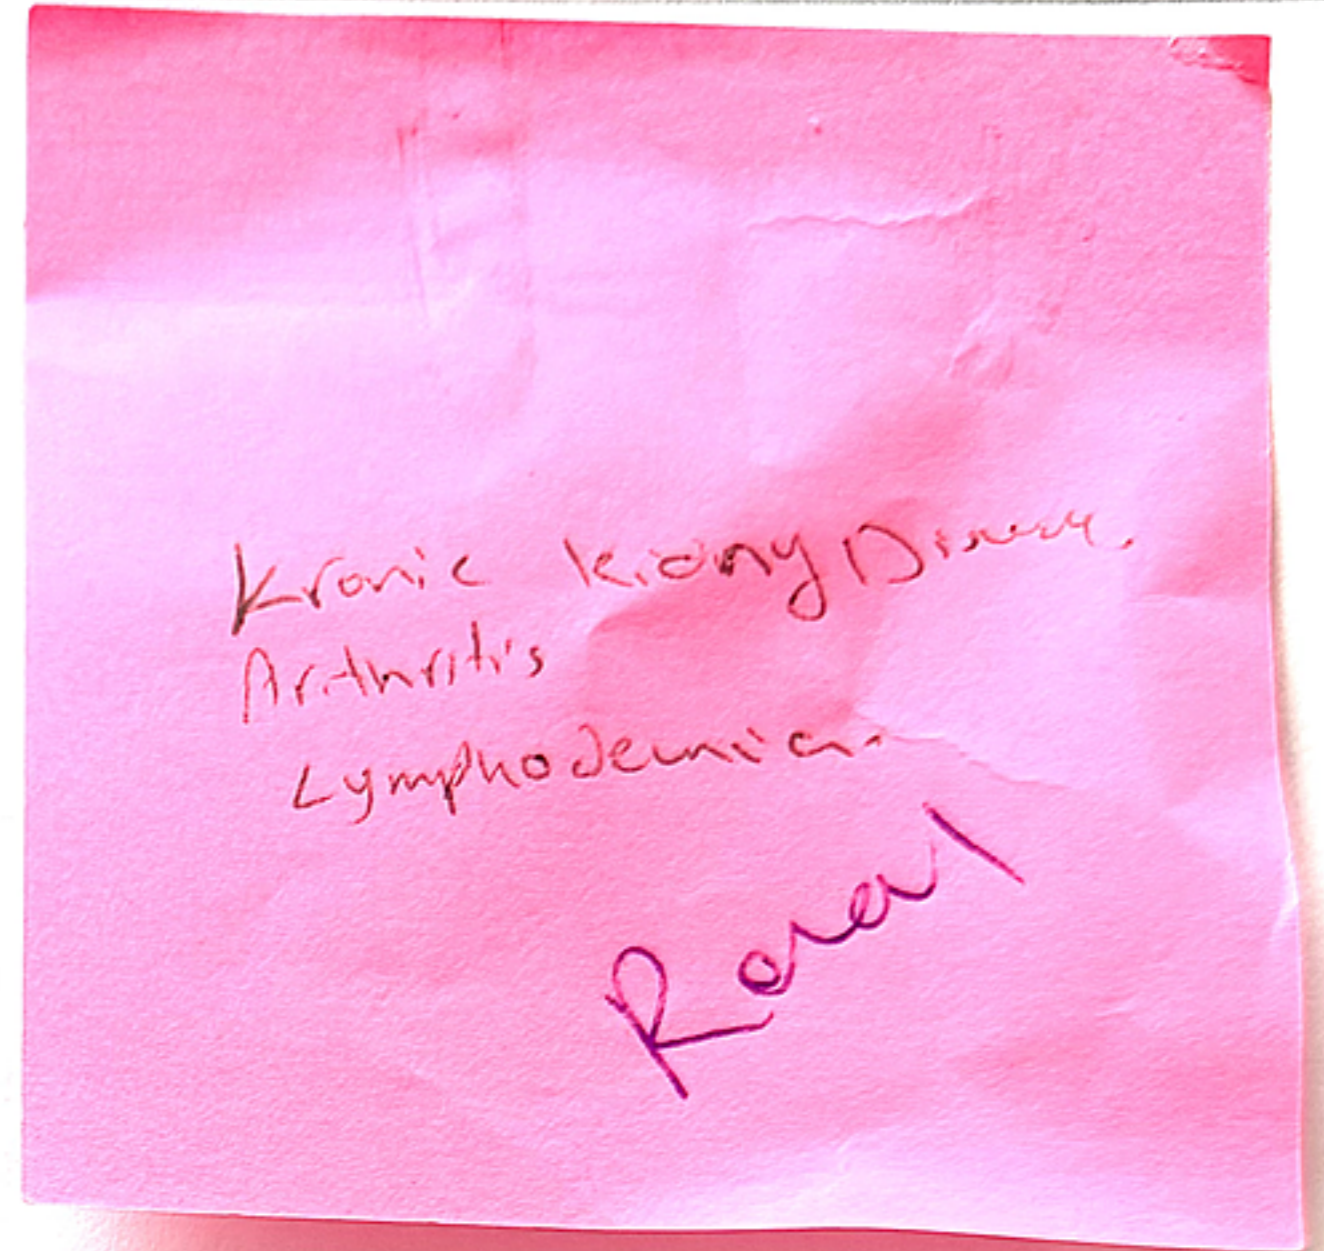 Kronic kidny Disease.
Arithritis
Lymphodemia.